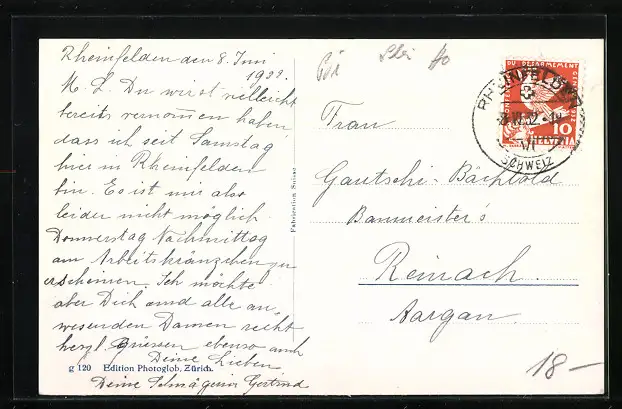 Rheinfelden den 8. Juni
1932.
M. L. Du wirst vielleicht
bereits vernommen haben,
dass ich seit Samstag
hier in Rheinfelden
bin. Es ist mir also
leider nicht möglich
Donnerstag Nachmittag
am Arbeitskränzchen zu
erscheinen. Ich möchte
aber Dich und alle an-
wesenden Damen recht
herzl. grüssen ebenso auch
Deine Lieben
Deine Schwägerin Gertrud
g 120 Edition Photoglob, Zürich.
Fabrication Suisse
DU DÉSARMEMENT
10
HELVETIA
RHEINFELDEN
8.VI.32
VI
SCHWEIZ
Frau
Gautschi-Bächtold
Baumeister's
Reinach.
Aargau.
18-